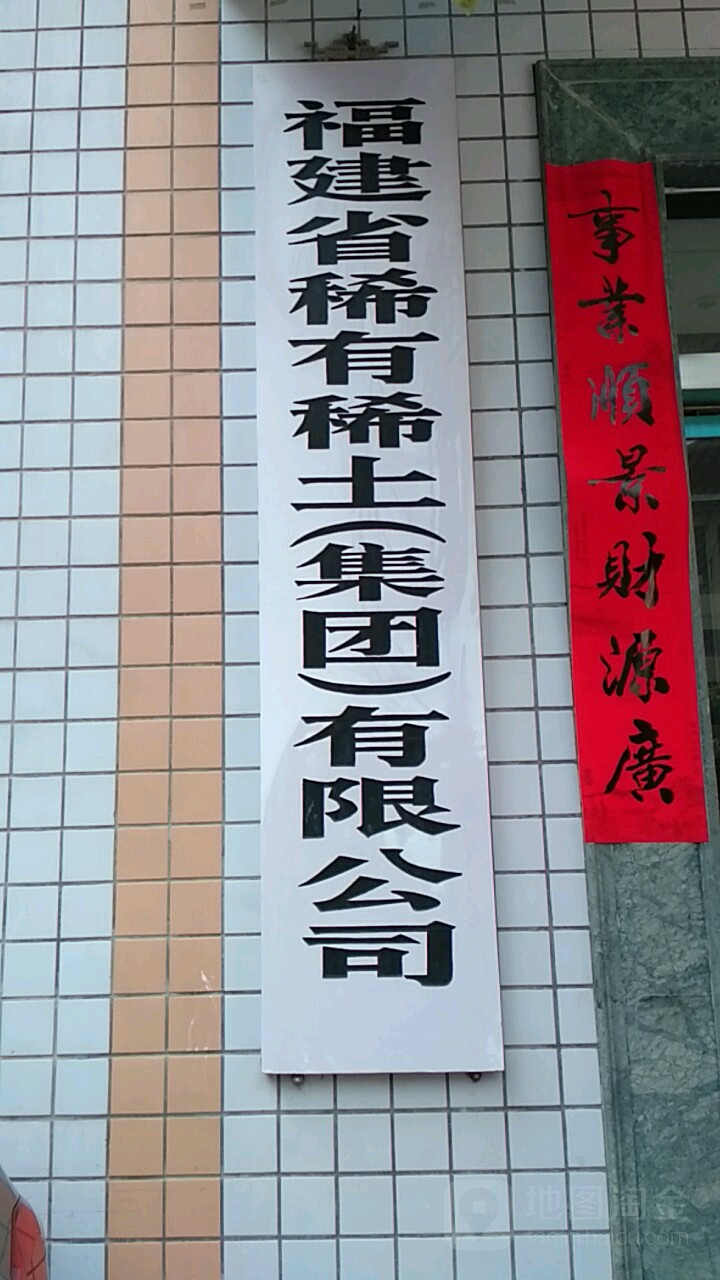 福建省稀有稀土(集团)有限公司
事業順景財源廣
地图淘金